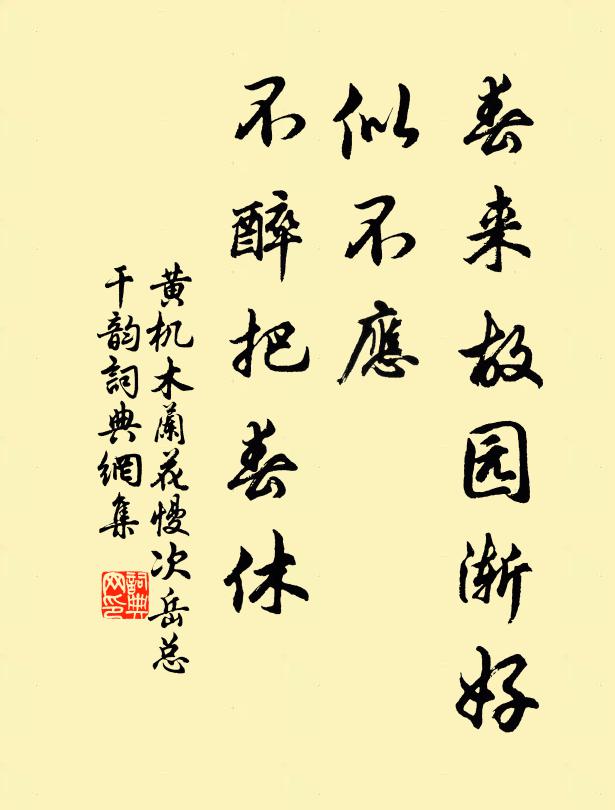 春来故园渐好
似不應
不醉把春休
黄机木蘭花慢次岳总
干韵詞典網集
詞典
网印